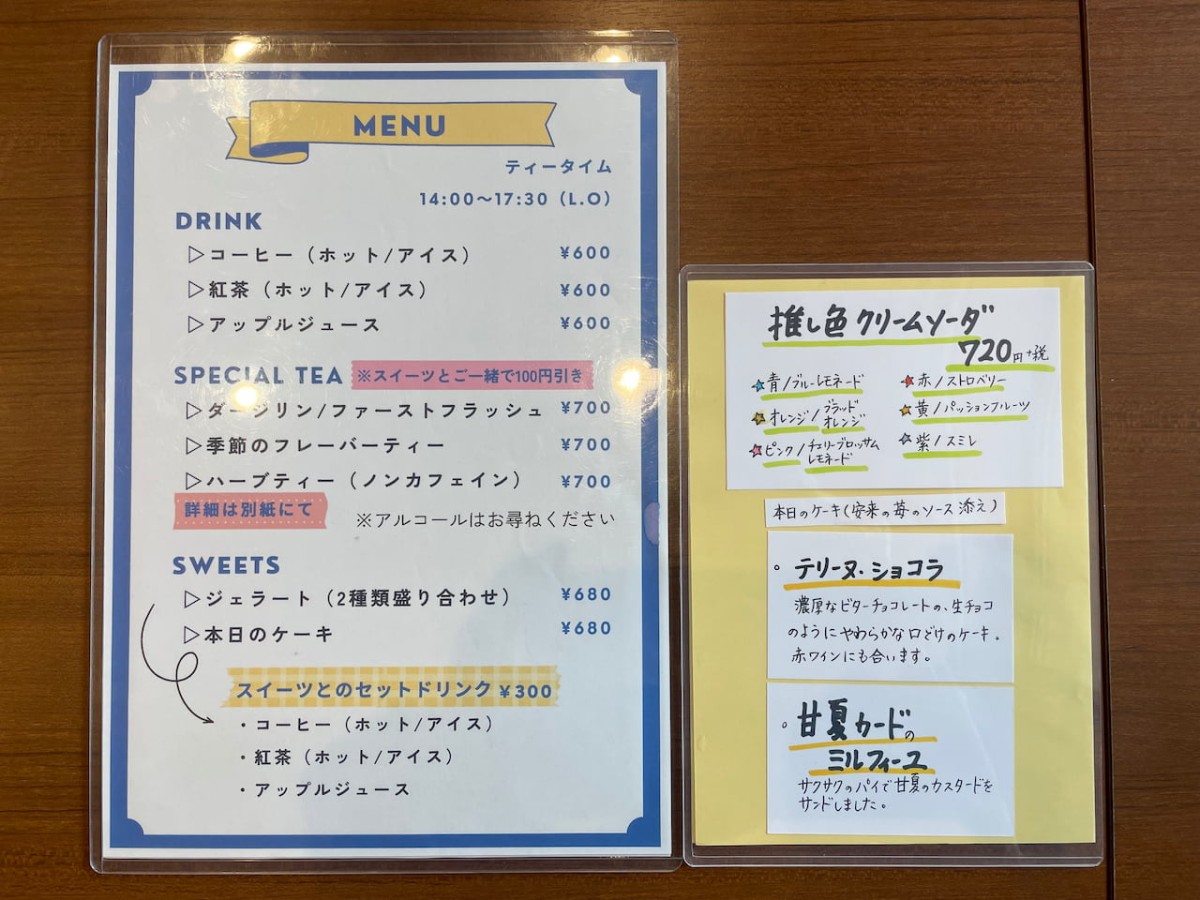 MENU
ティータイム
14:00〜17:30（L.O）
DRINK
▷コーヒー（ホット/アイス） ¥600
▷紅茶（ホット/アイス） ¥600
▷アップルジュース ¥600
SPECIAL TEA ※スイーツとご一緒で100円引き
▷ダージリン/ファーストフラッシュ ¥700
▷季節のフレーバーティー ¥700
▷ハーブティー（ノンカフェイン） ¥700
詳細は別紙にて ※アルコールはお尋ねください
SWEETS
▷ジェラート（2種類盛り合わせ） ¥680
▷本日のケーキ ¥680
スイーツとのセットドリンク ¥300
・コーヒー（ホット/アイス）
・紅茶（ホット/アイス）
・アップルジュース
推し色クリームソーダ
720円+税
☆青/ブルーレモネード ☆赤/ストロベリー
☆オレンジ/ブラッド ☆黄/パッションフルーツ
オレンジ
☆ピンク/チェリーブロッサム ☆紫/スミレ
レモネード
本日のケーキ(安来の苺のソース添え)
。テリーヌ・ショコラ
濃厚なビターチョコレートの、生チョコ
のようにやわらかな口どけのケーキ。
赤ワインにも合います。
。甘夏カードの
ミルフィーユ
サクサクのパイで甘夏のカスタードを
サンドしました。